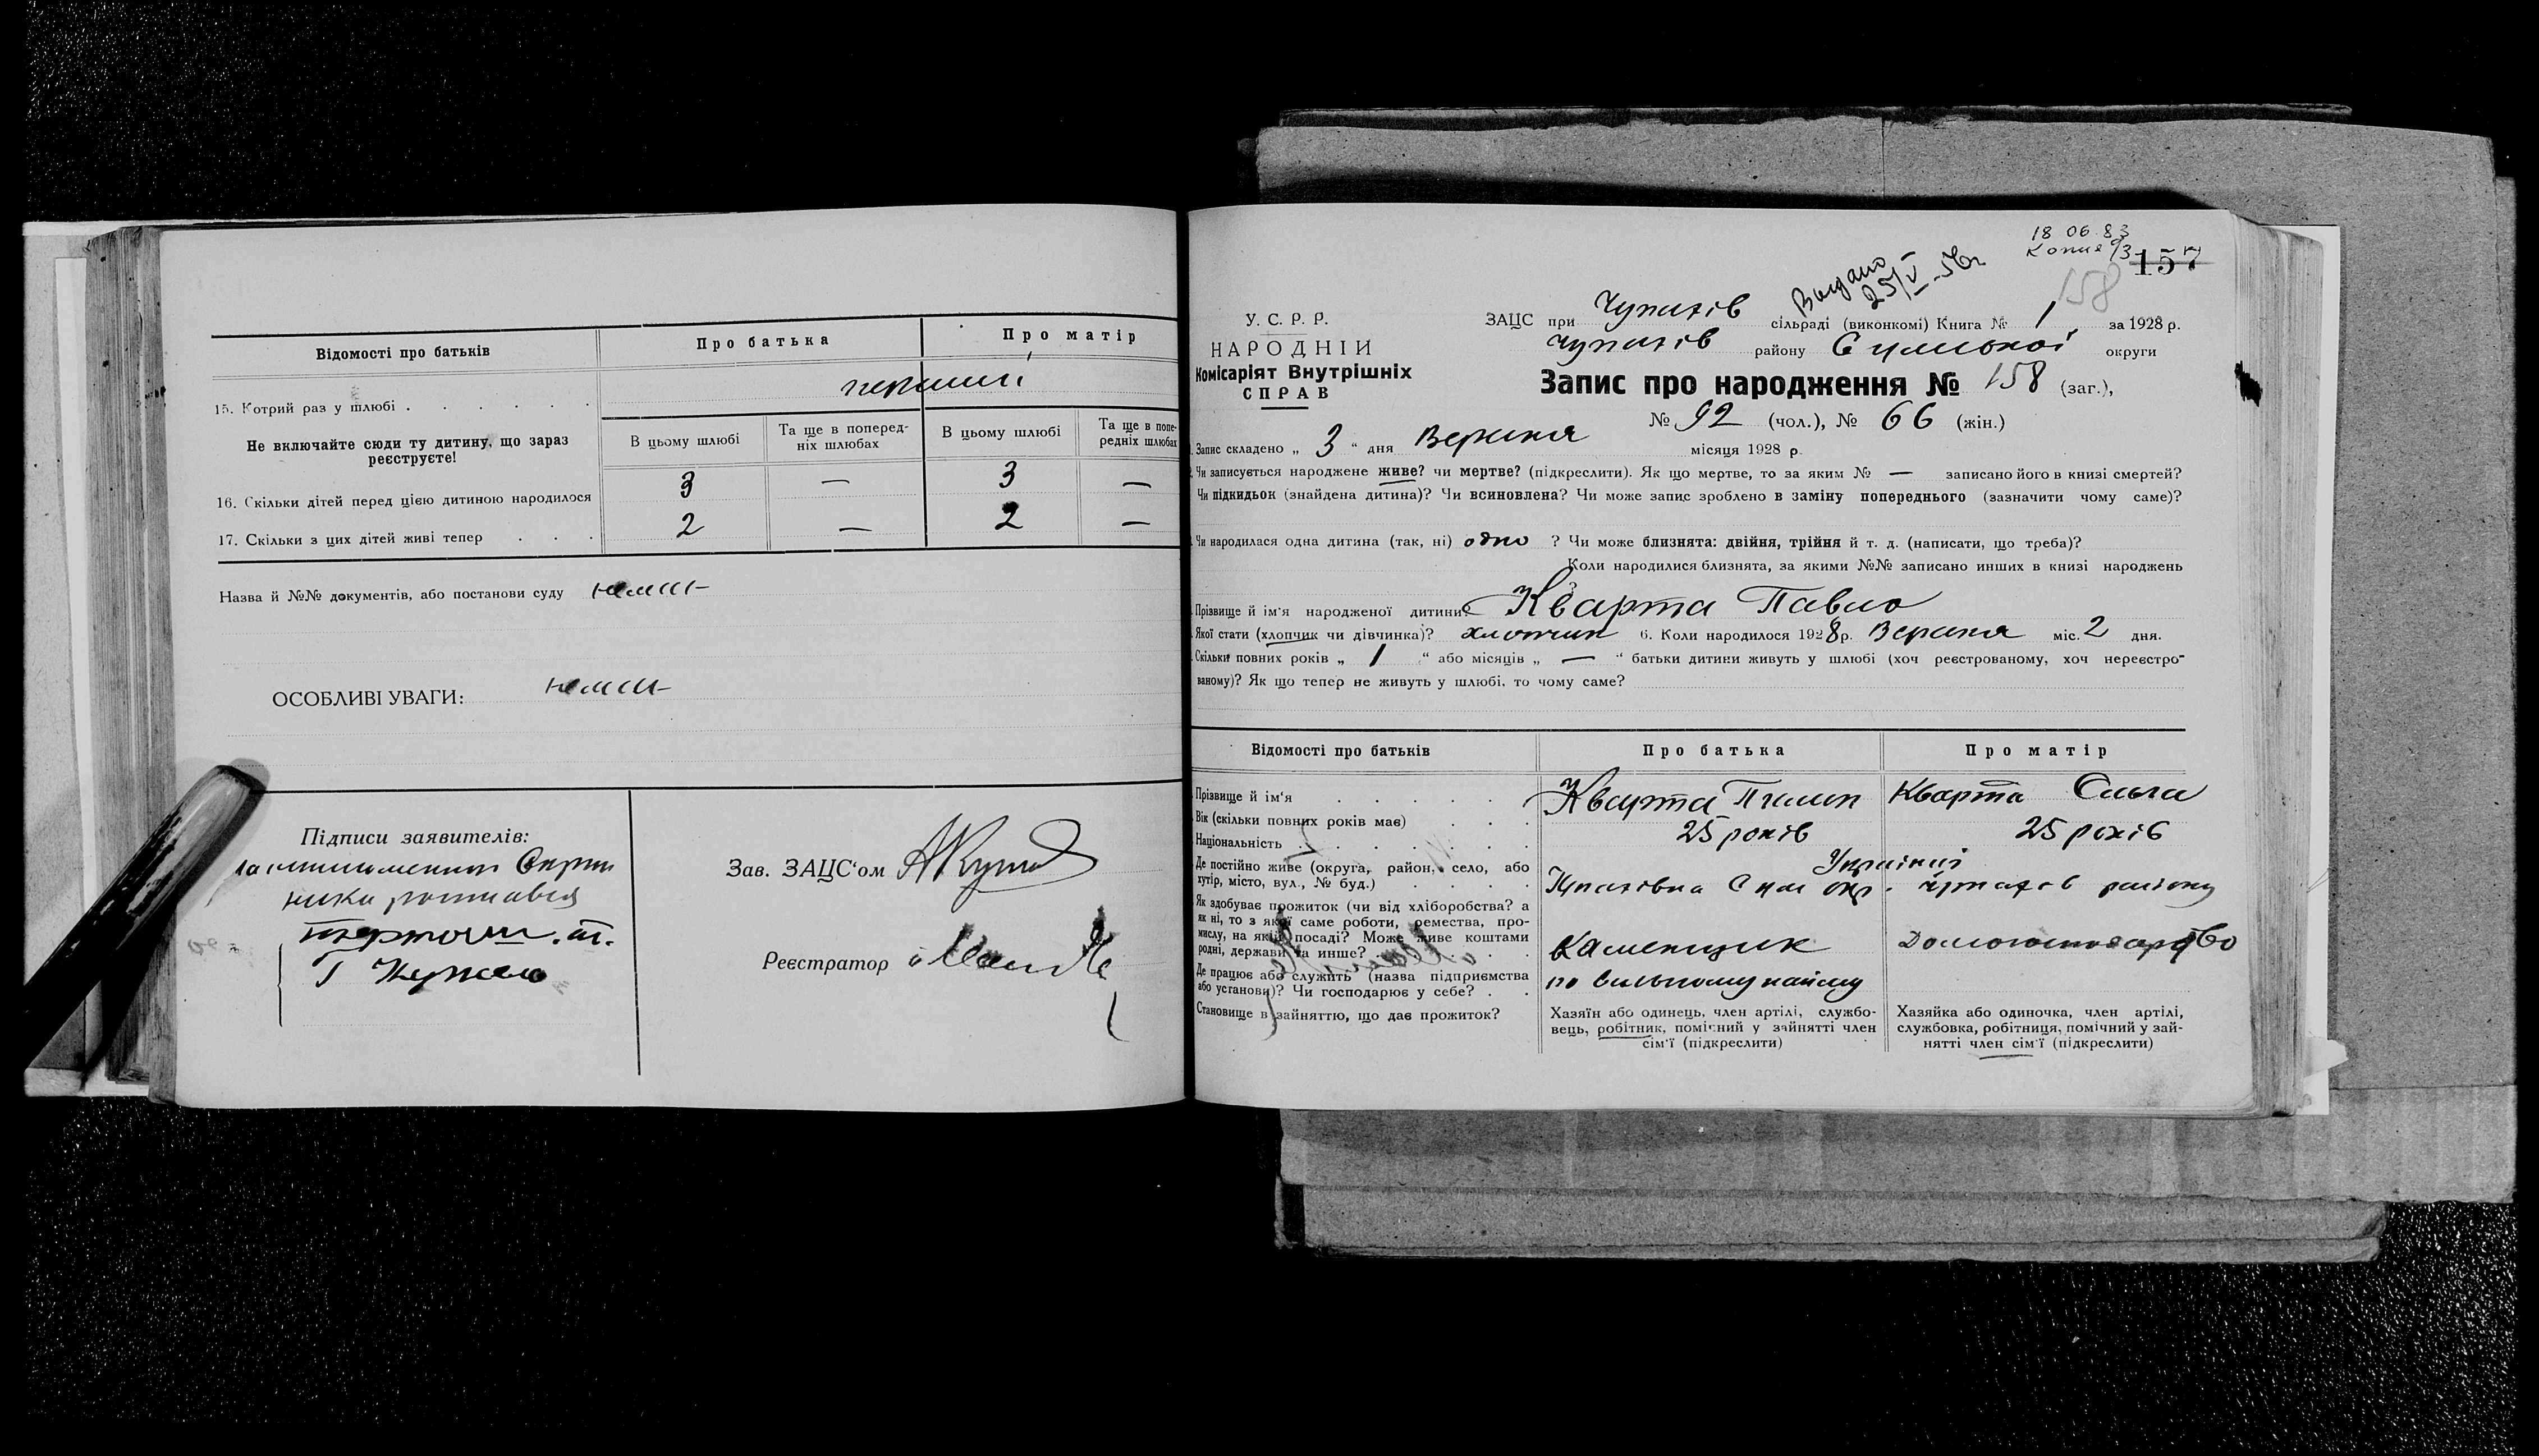 Відомості про батьків
Про батька
Про матір
15. Котрий раз у шлюбі . . . . . .
перший
Не включайте сюди ту дитину, що зараз реєструєте!
В цьому шлюбі
Та ще в поперед-
ніх шлюбах
В цьому шлюбі
Та ще в попе-
редніх шлюбах
16. Скільки дітей перед цією дитиною народилося
3 — 3 —
17. Скільки з цих дітей живі тепер . . .
2 — 2 —
Назва й №№ документів, або постанови суду
немає
ОСОБЛИВІ УВАГИ:
немає
Підписи заявителів:
Зав. ЗАЦС'ом
Реєстратор
18 06 83
Копия
157
158
Выдано
25/V-56г
У. С. Р. Р.
НАРОДНІЙ
Комісаріят Внутрішніх
СПРАВ
ЗАЦС при Чупахів сільраді (виконкомі) Книга № 1 за 1928 р.
Чупахів району Сумської округи
Запис про народження № 158 (заг.),
№ 92 (чол.), № 66 (жін.)
Запис складено „ 3 “ дня Вересня місяця 1928 р.
Чи записується народжене живе? чи мертве? (підкреслити). Як що мертве, то за яким № — записано його в книзі смертей?
Чи підкидьок (знайдена дитина)? Чи всиновлена? Чи може запис зроблено в заміну попереднього (зазначити чому саме)?
Чи народилася одна дитина (так, ні) одно ? Чи може близнята: двійня, трійня й т. д. (написати, що треба)?
Коли народилися близнята, за якими №№ записано инших в книзі народжень
?
Прізвище й ім'я народженої дитини? Кварта Павло
Якої стати (хлопчик чи дівчинка)? хлопчик 6. Коли народилося 1928 р. Вересня міс. 2 дня.
Скільки повних років „ 1 “ або місяців „ — “ батьки дитини живуть у шлюбі (хоч реєстрованому, хоч нереєстро-
ваному)? Як що тепер не живуть у шлюбі, то чому саме?
Відомості про батьків
Про батька
Про матір
Прізвище й ім'я . . . . .
Кварта Пилип
Кварта Ольга
Вік (скільки повних років має) . . .
25 років
25 років
Національність . . . . . . .
Українці
Де постійно живе (округа, район, село, або
хутір, місто, вул., № буд.) . . . .
Чупахівка Сум окр. Чупахів району
Як здобуває прожиток (чи від хліборобства? а
як ні, то з якої саме роботи, ремества, про-
мислу, на якій посаді? Може живе коштами
родні, держави та инше? . . . .
Каменщик
Домогосподарство
Де працює або служить (назва підприємства
або установи)? Чи господарює у себе? . .
по вильному найму
Становище в зайняттю, що дає прожиток?
Хазяїн або одинець, член артілі, службо-
вець, робітник, помічний у зайнятті член
сім'ї (підкреслити)
Хазяйка або одиночка, член артілі,
службовка, робітниця, помічний у зай-
нятті член сім'ї (підкреслити)